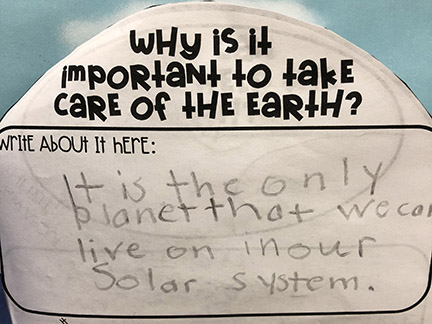 WHY IS IT
IMPORTANT TO TAKE
CARE OF THE EARTH?
WRITE ABOUT IT HERE:
It is the only
planet that we can
live on in our
Solar system.